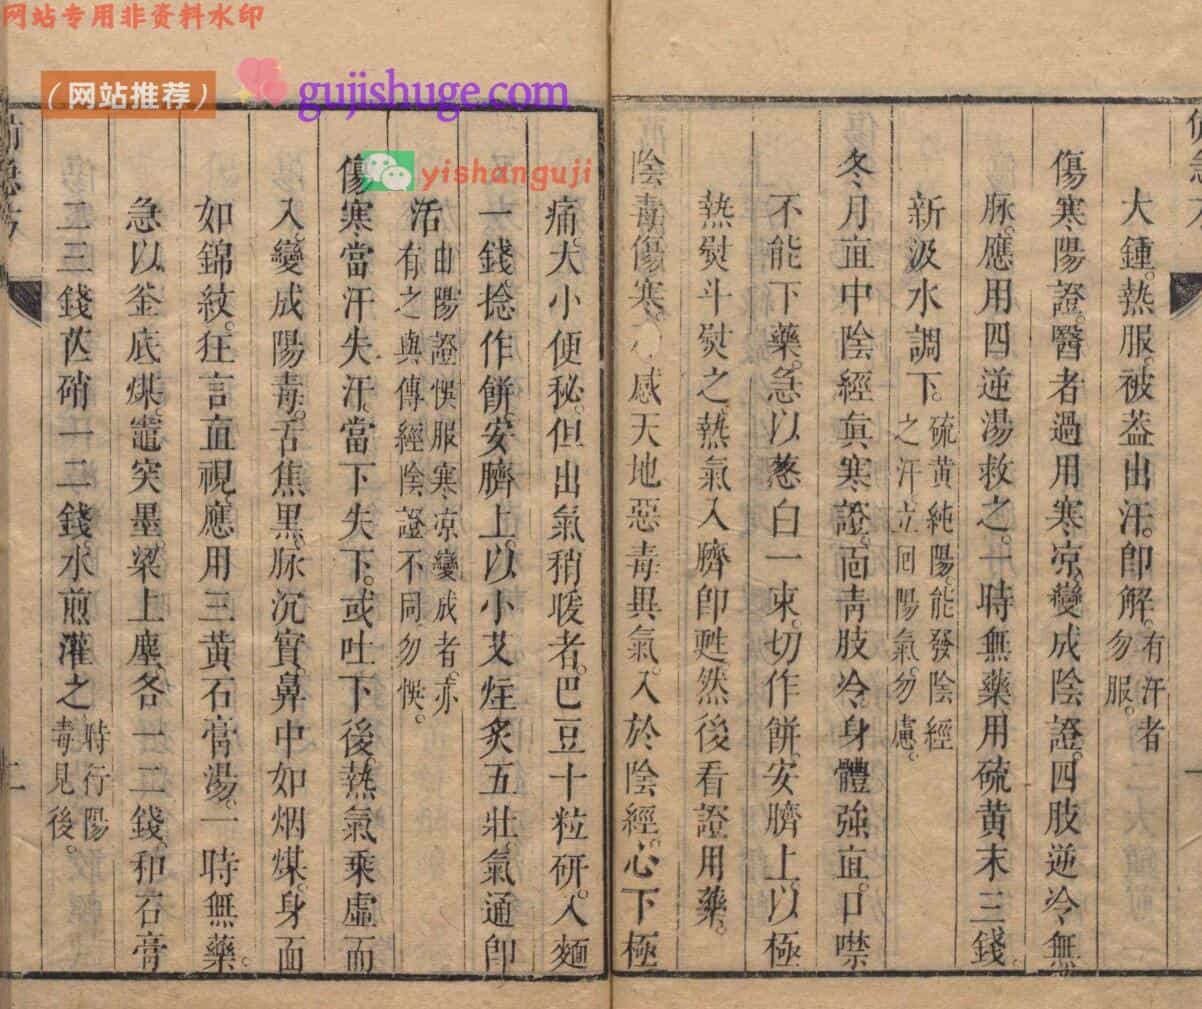 网站专用非资料水印
(网站推荐)
gujishuge.com
yishanguji
大鍾。熱服。被葢出汗。卽解。有汗者勿服。
傷寒陽證。醫者過用寒凉。變成陰證。四肢逆冷。無
脉。應用四逆湯救之。一時無藥。用硫黃末三錢。
新汲水調下。硫黃純陽。能發陰經之汗。立囘陽氣。勿慮。
冬月直中陰經眞寒證。靣青肢冷。身體強直。口噤
不能下藥。急以葱白一束。切作餅。安臍上。以極
熱熨斗熨之。熱氣入臍卽甦。然後看證用藥。
陰毒傷寒。感天地惡毒異氣。入於陰經。心下極
痛。大小便秘。但出氣稍暖者。巴豆十粒研。入麵
一錢。捻作餅。安臍上。以小艾炷炙五壯。氣通卽
活。由陽證悞服寒凉變成者。亦有之。與傳經陰證不同。勿悞。
傷寒當汗失汗。當下失下。或吐下後。熱氣乘虛而
入。變成陽毒。舌焦黑。脉沉實。鼻中如烟煤。身面
如錦紋。狂言直視。應用三黃石膏湯。一時無藥。
急以釜底煤。竈突墨。梁上塵。各一二錢。和石膏
二三錢。芒硝一二錢。水煎灌之。時行陽毒見後。
二